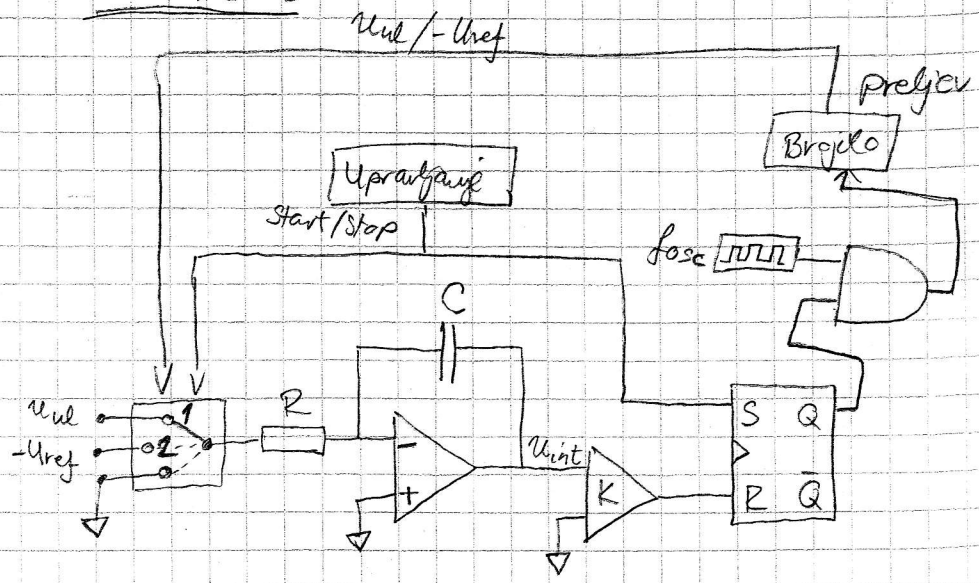 Uul/-Uref
preljev
Brojilo
Upravljanje
Start/Stop
fosc
C
Uul
1
R
-Uref
2
-
+
Uint
K
S Q
R Q̅